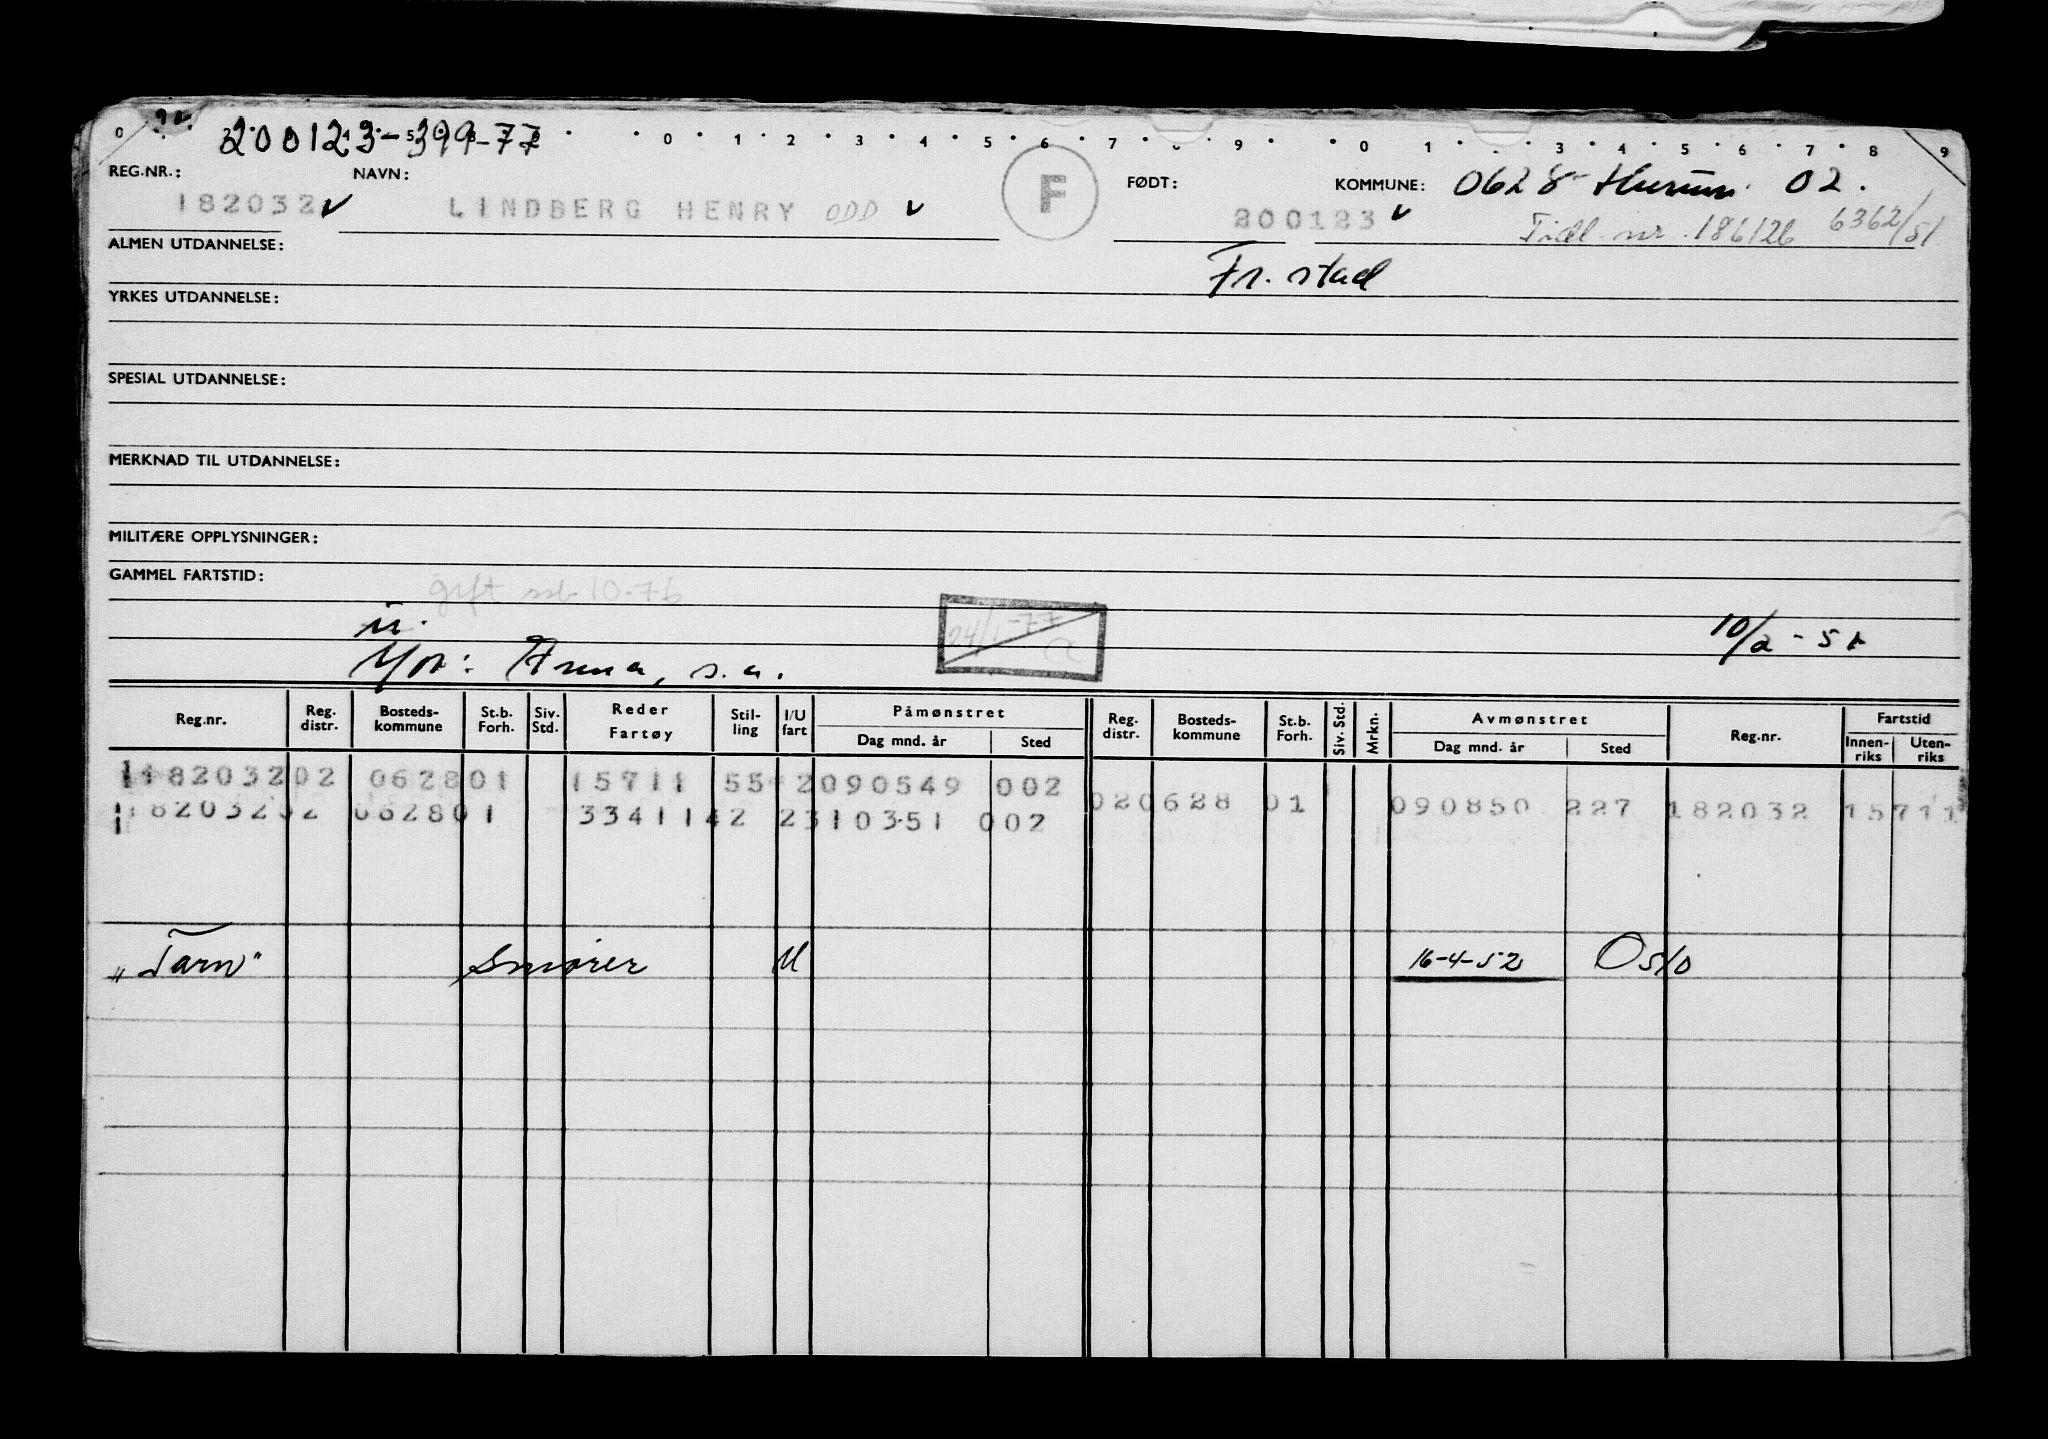 200123-399-77
0 1 2 3 4 5 6 7 9 0 1 3 4 5 6 7 8 9
REG.NR.: NAVN: F FØDT: KOMMUNE: 0628 Hurum 02.
182032 LINDBERG HENRY ODD 200123 Tidl. nr. 186126 6362/51
ALMEN UTDANNELSE:
Fr.stad
YRKES UTDANNELSE:
SPESIAL UTDANNELSE:
MERKNAD TIL UTDANNELSE:
MILITÆRE OPPLYSNINGER:
GAMMEL FARTSTID:
gift ssb 10-76
u. 24/1-77 10/2-51
Mor: Anna, s.a.
Reg.nr. Reg. distr. Bosteds-kommune St.b. Forh. Siv. Std. Reder Fartøy Stil-ling I/U fart Påmønstret Dag mnd. år Sted Reg. distr. Bosteds-kommune St.b. Forh. Siv. Std. Mrkn. Avmønstret Dag mnd. år Sted Reg.nr. Fartstid Innen-riks Uten-riks
18203202 062801 15711 55 2090549 002 020628 01 090850 227 182032 15711
18203202 062801 3341142 2310351 002
„Tarn" Smører U 16-4-52 Oslo